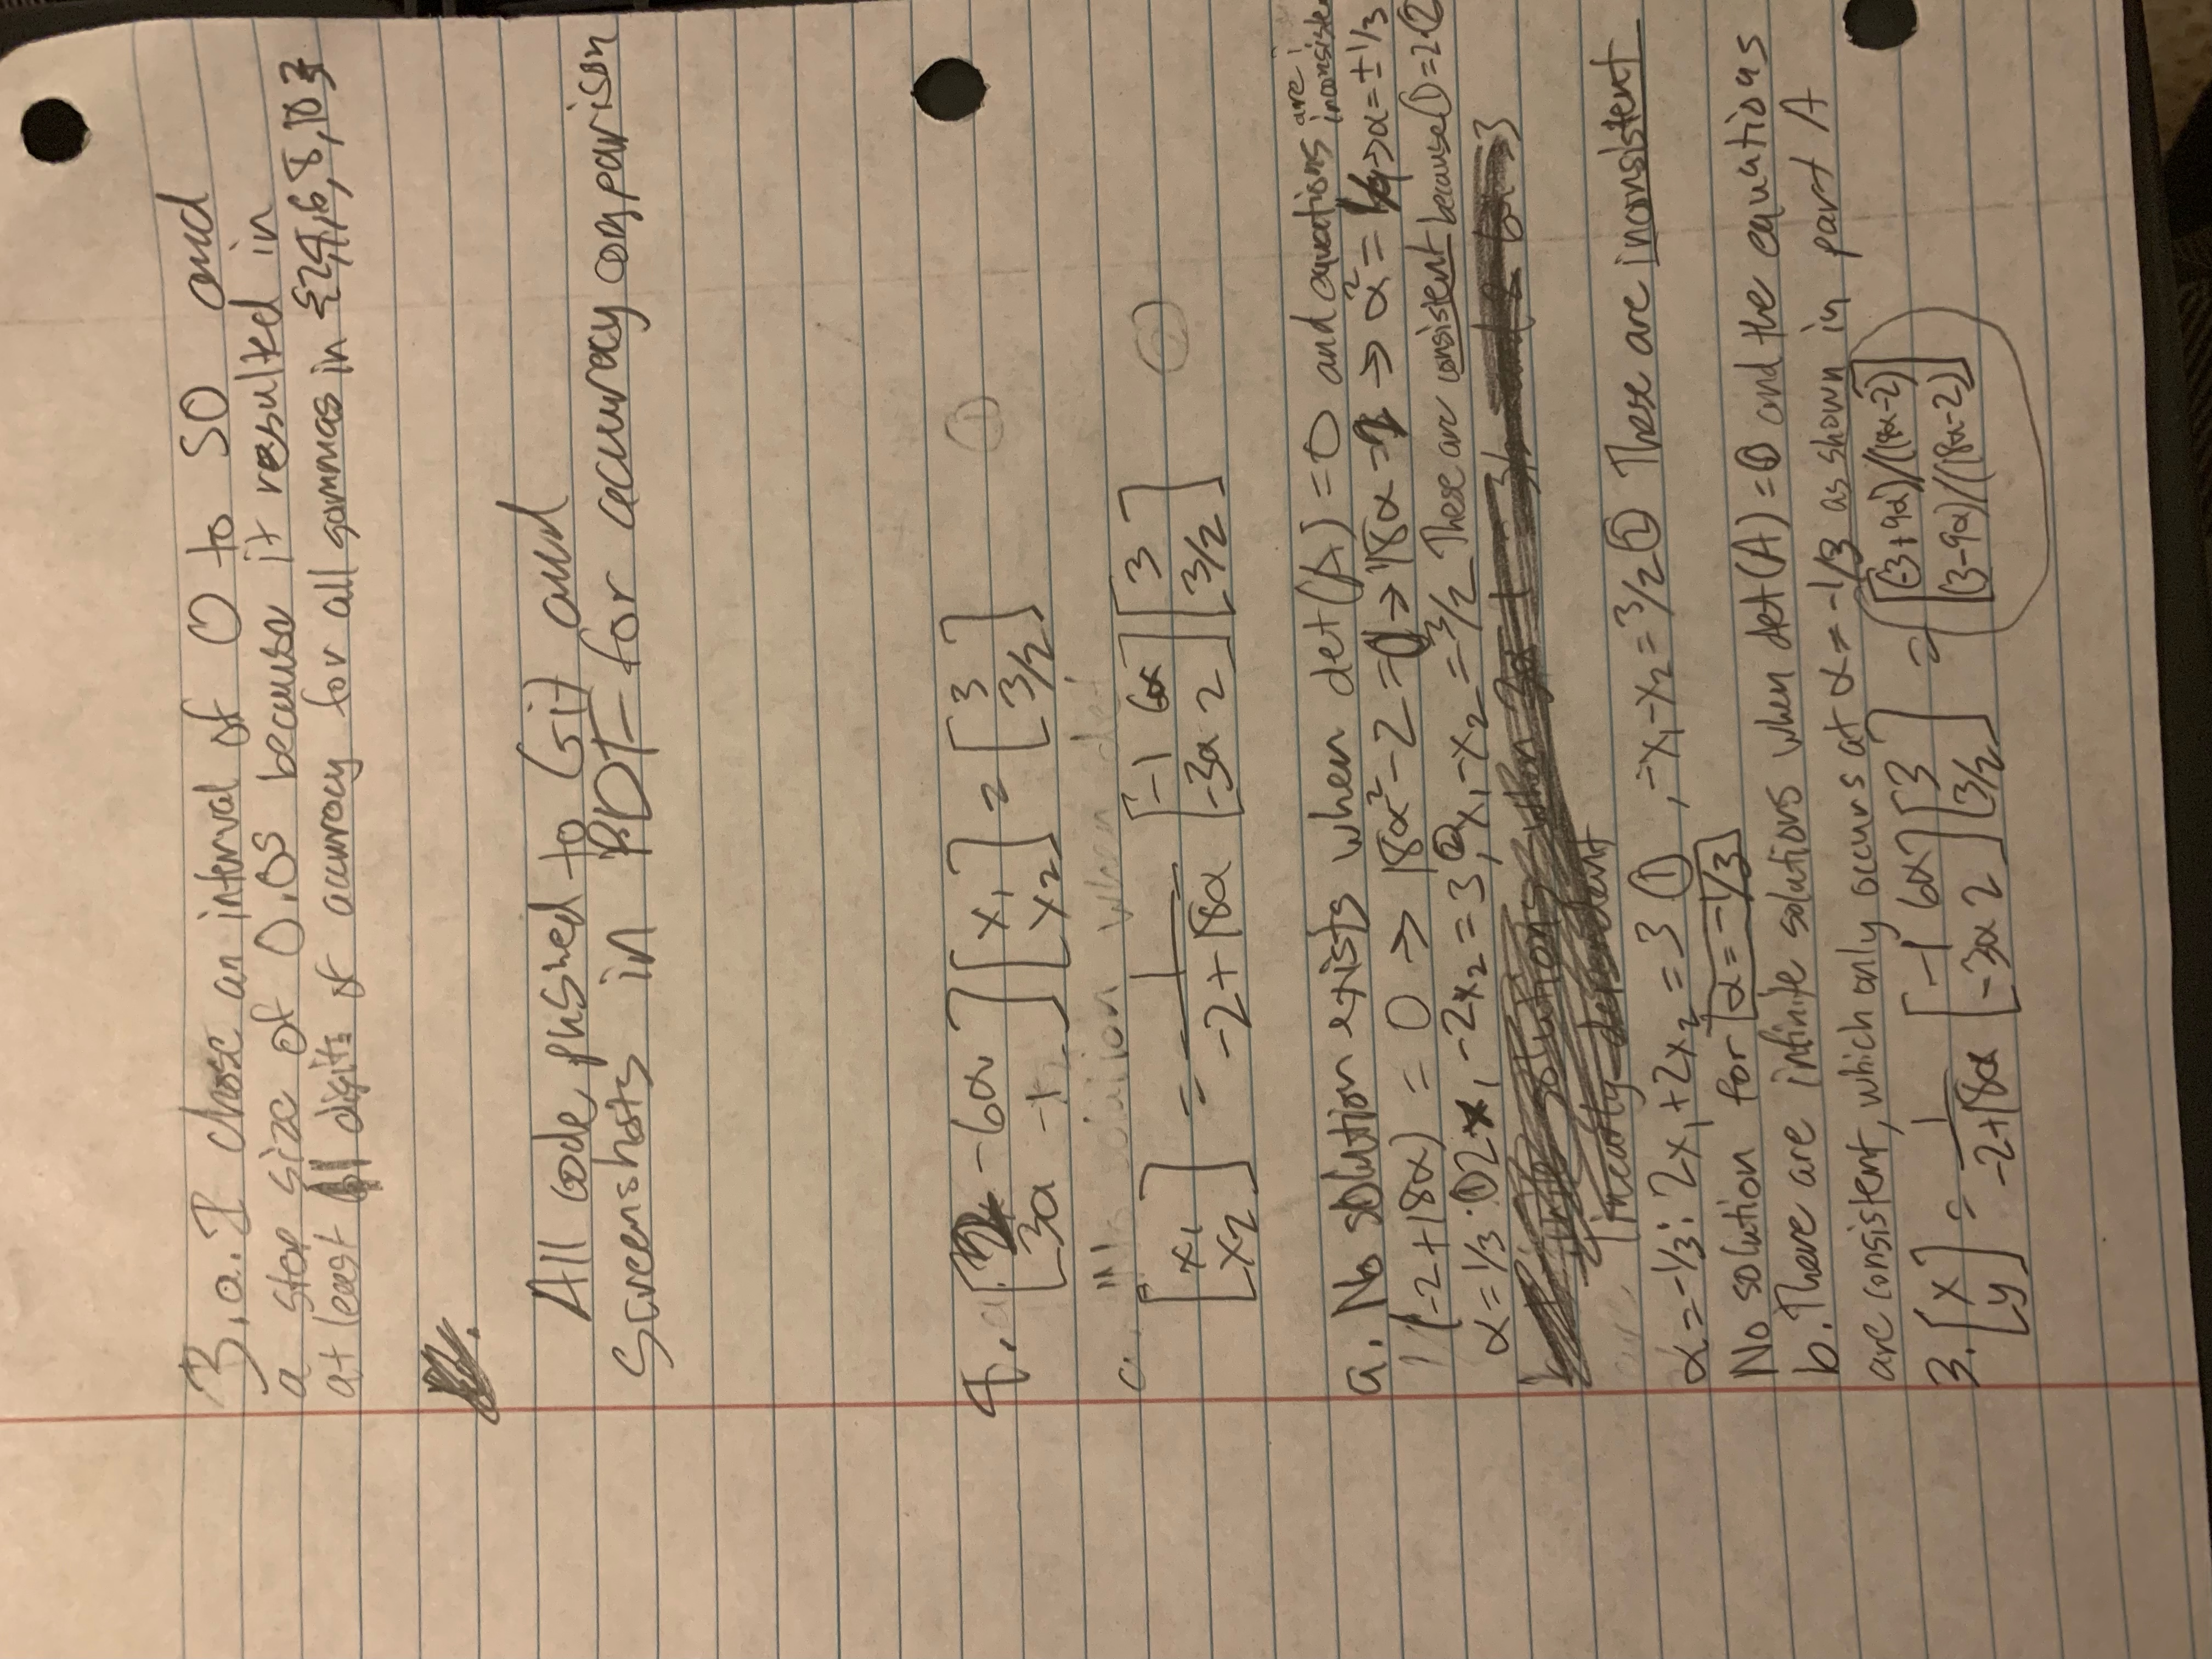 3.a. I chose an interval of 0 to 50 and
a step size of 0.05 because it resulted in
at least 11 digits of accuracy for all gammas in {2,4,6,8,10}
All code pushed to Git and
Screenshots in PDF for accuracy comparison
4. a. [2 -6α; 3α -1] [x₁; x₂] = [3; 3/2] ①
a. No solution when det
[x₁; x₂] = 1/(-2+18α) [-1 6α; -3α 2] [3; 3/2] ②
a. No solution exists when det(A) = 0 and equations are inconsiste
1/(-2+18α) = 0 → 18α²-2=0 → 18α=2 → α²=1/9 → α=±1/3
α=1/3: ① 2x₁-2x₂=3, ② x₁-x₂=3/2 These are consistent because ①=2·②
solutions when 3α
linearly dependent
α=-1/3: 2x₁+2x₂=3 ①, -x₁-x₂=3/2 ② These are inconsistent
No solution for α=-1/3
b. There are infinite solutions when det(A)=0 and the equations
are consistent, which only occurs at α=-1/3 as shown in part A
3. [x; y] = 1/(-2+18α) [-1 6α; -3α 2] [3; 3/2] = [(-3+9α)/(18α-2); (3-9α)/(18α-2)]